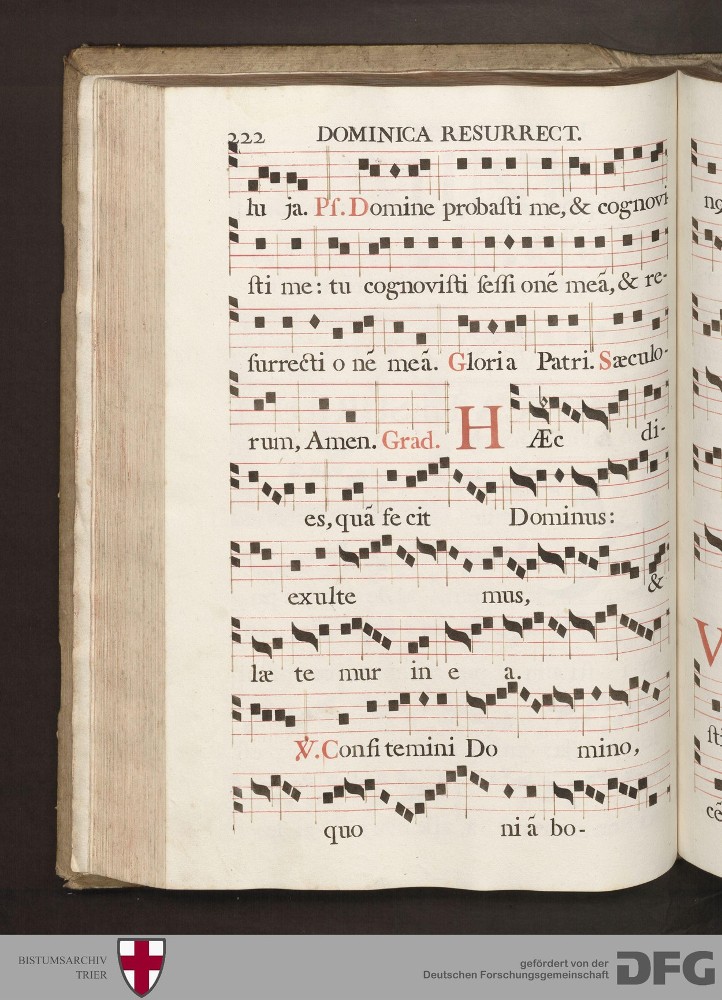 222 DOMINICA RESURRECT.
lu ja. Pſ. Domine probaſti me, & cognovi
ſti me: tu cognoviſti ſeſſi onē meā, & re-
ſurrecti o nē meā. Gloria Patri. Sæculo-
rum, Amen. Grad. HÆc di-
es, quā fe cit Dominus:
exulte mus, &
læ te mur in e a.
℣. Confi temini Do mino,
quo ni ā bo-
V
ſti
cē
BISTUMSARCHIV
TRIER
gefördert von der
Deutschen Forschungsgemeinschaft
DFG